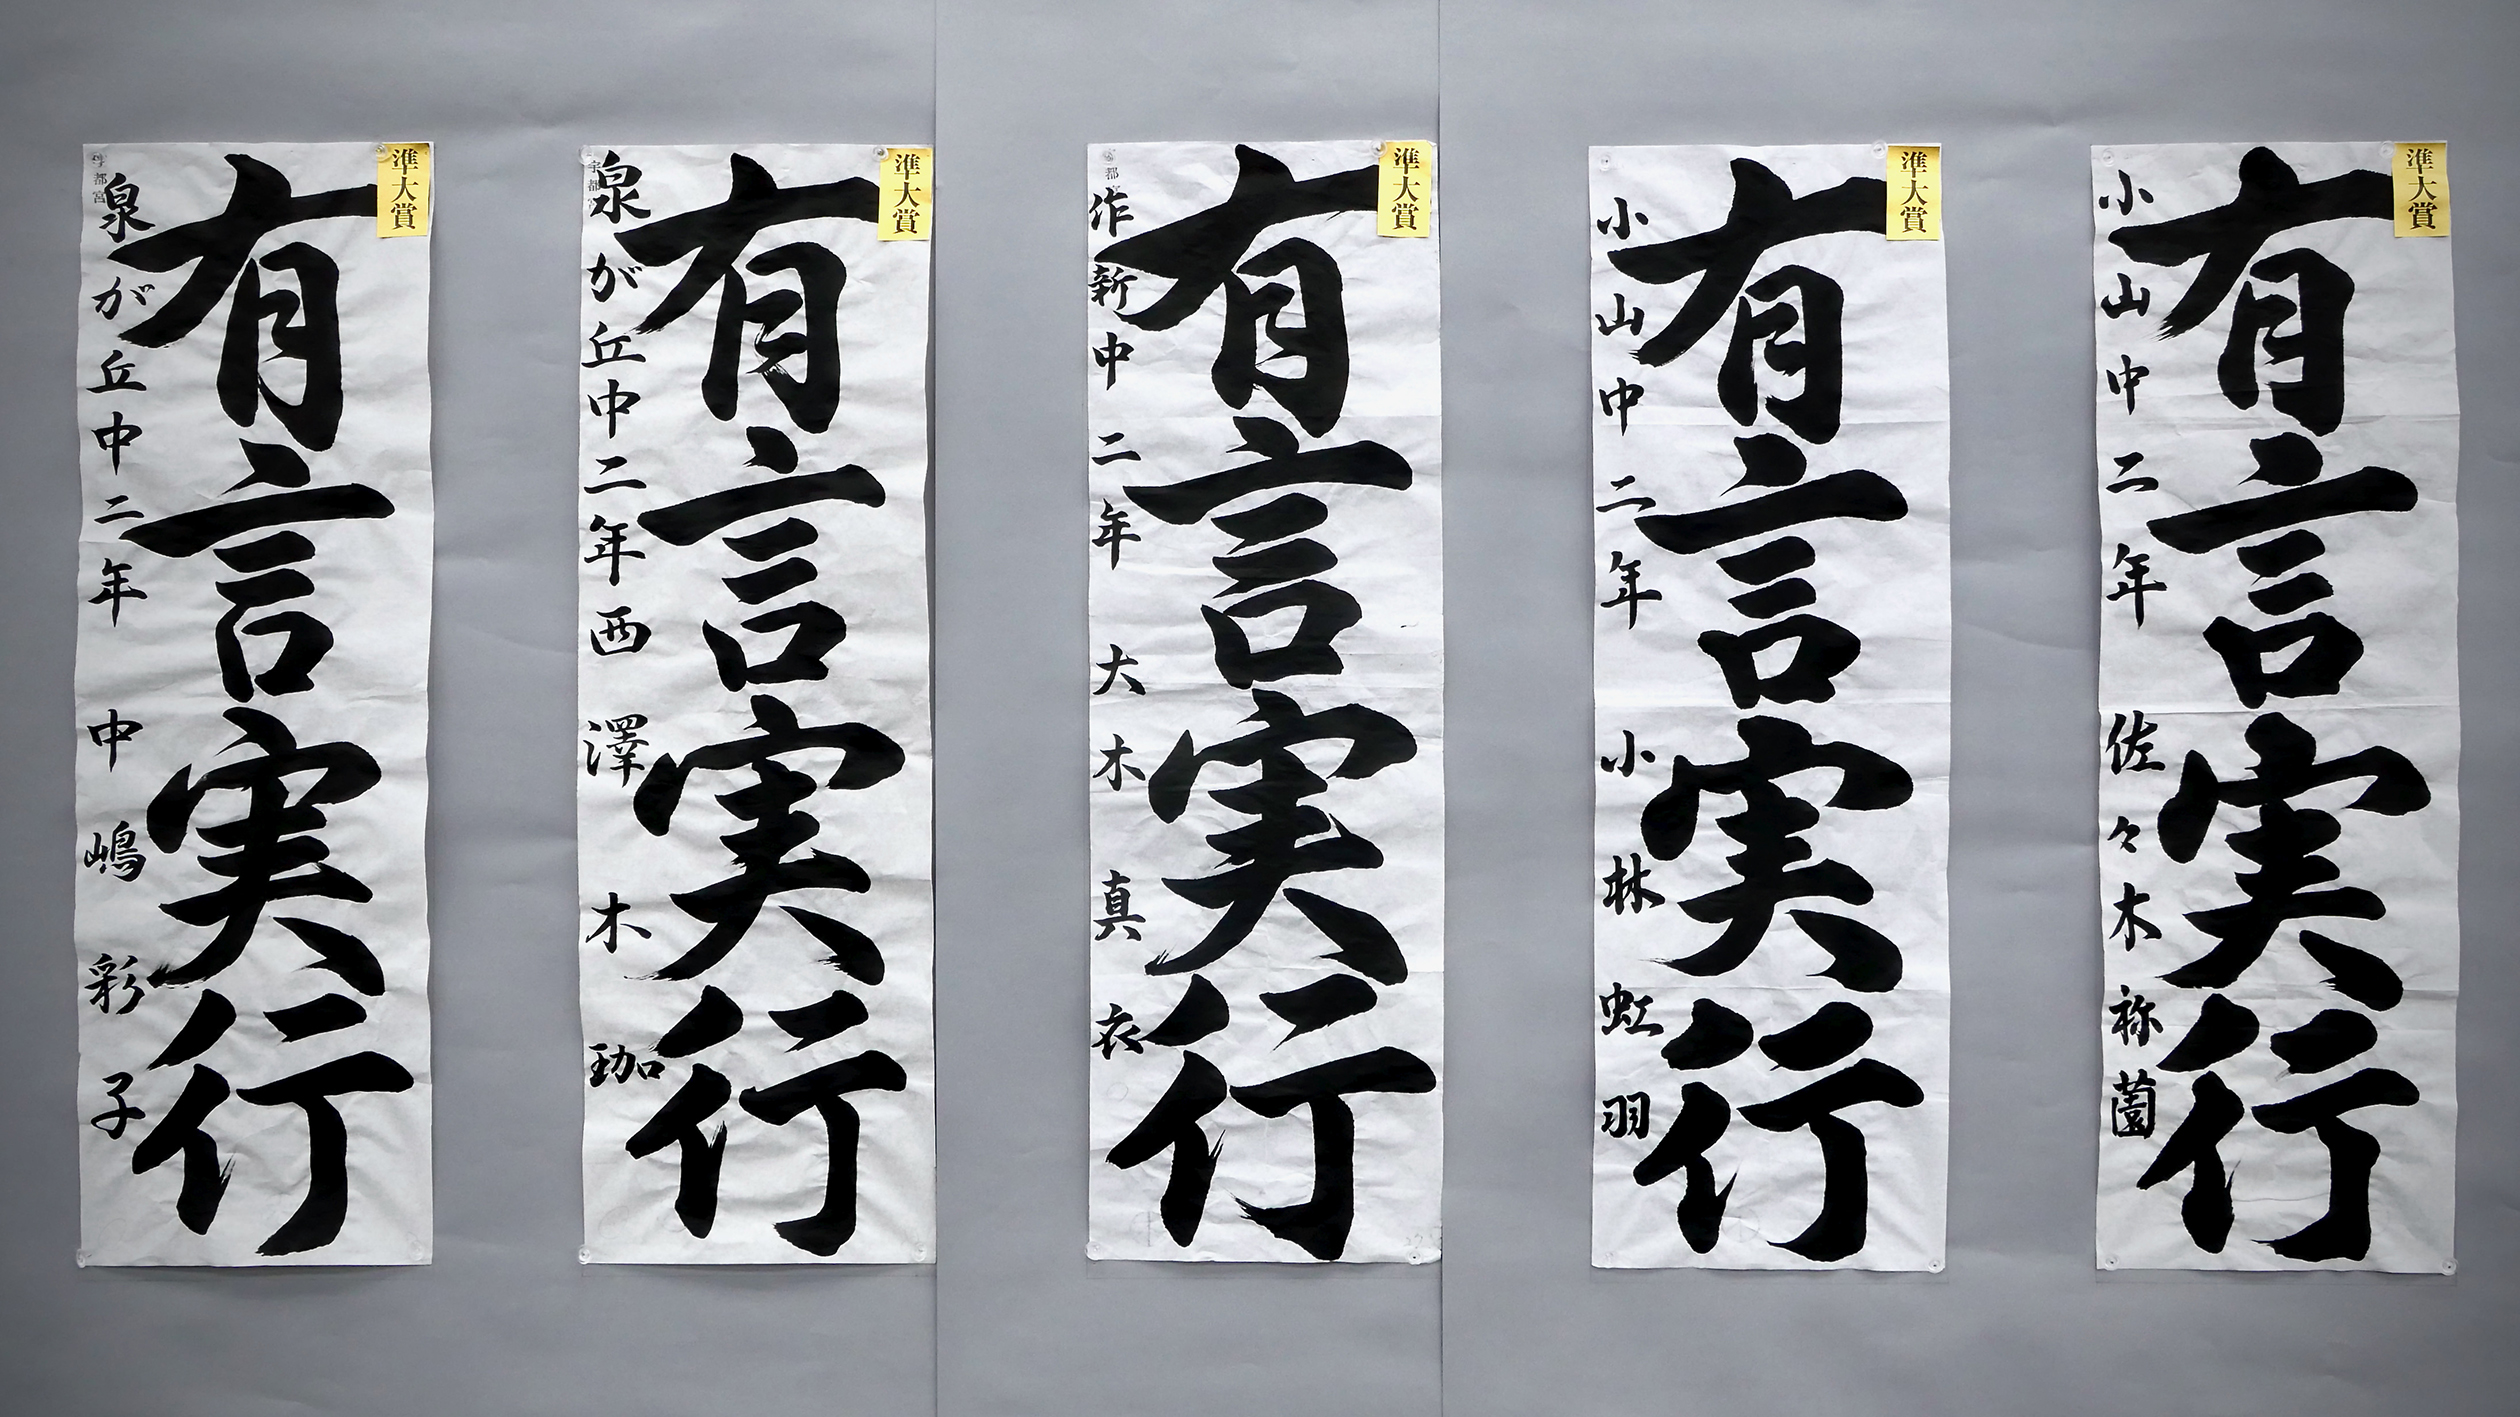 準大賞
有言実行
泉が丘中二年 中嶋彩子
宇都宮
準大賞
有言実行
泉が丘中二年 西澤木珈
準大賞
有言実行
作新中二年 大木真衣
準大賞
有言実行
小山中二年 小林虹羽
準大賞
有言実行
小山中二年 佐々木祢薗